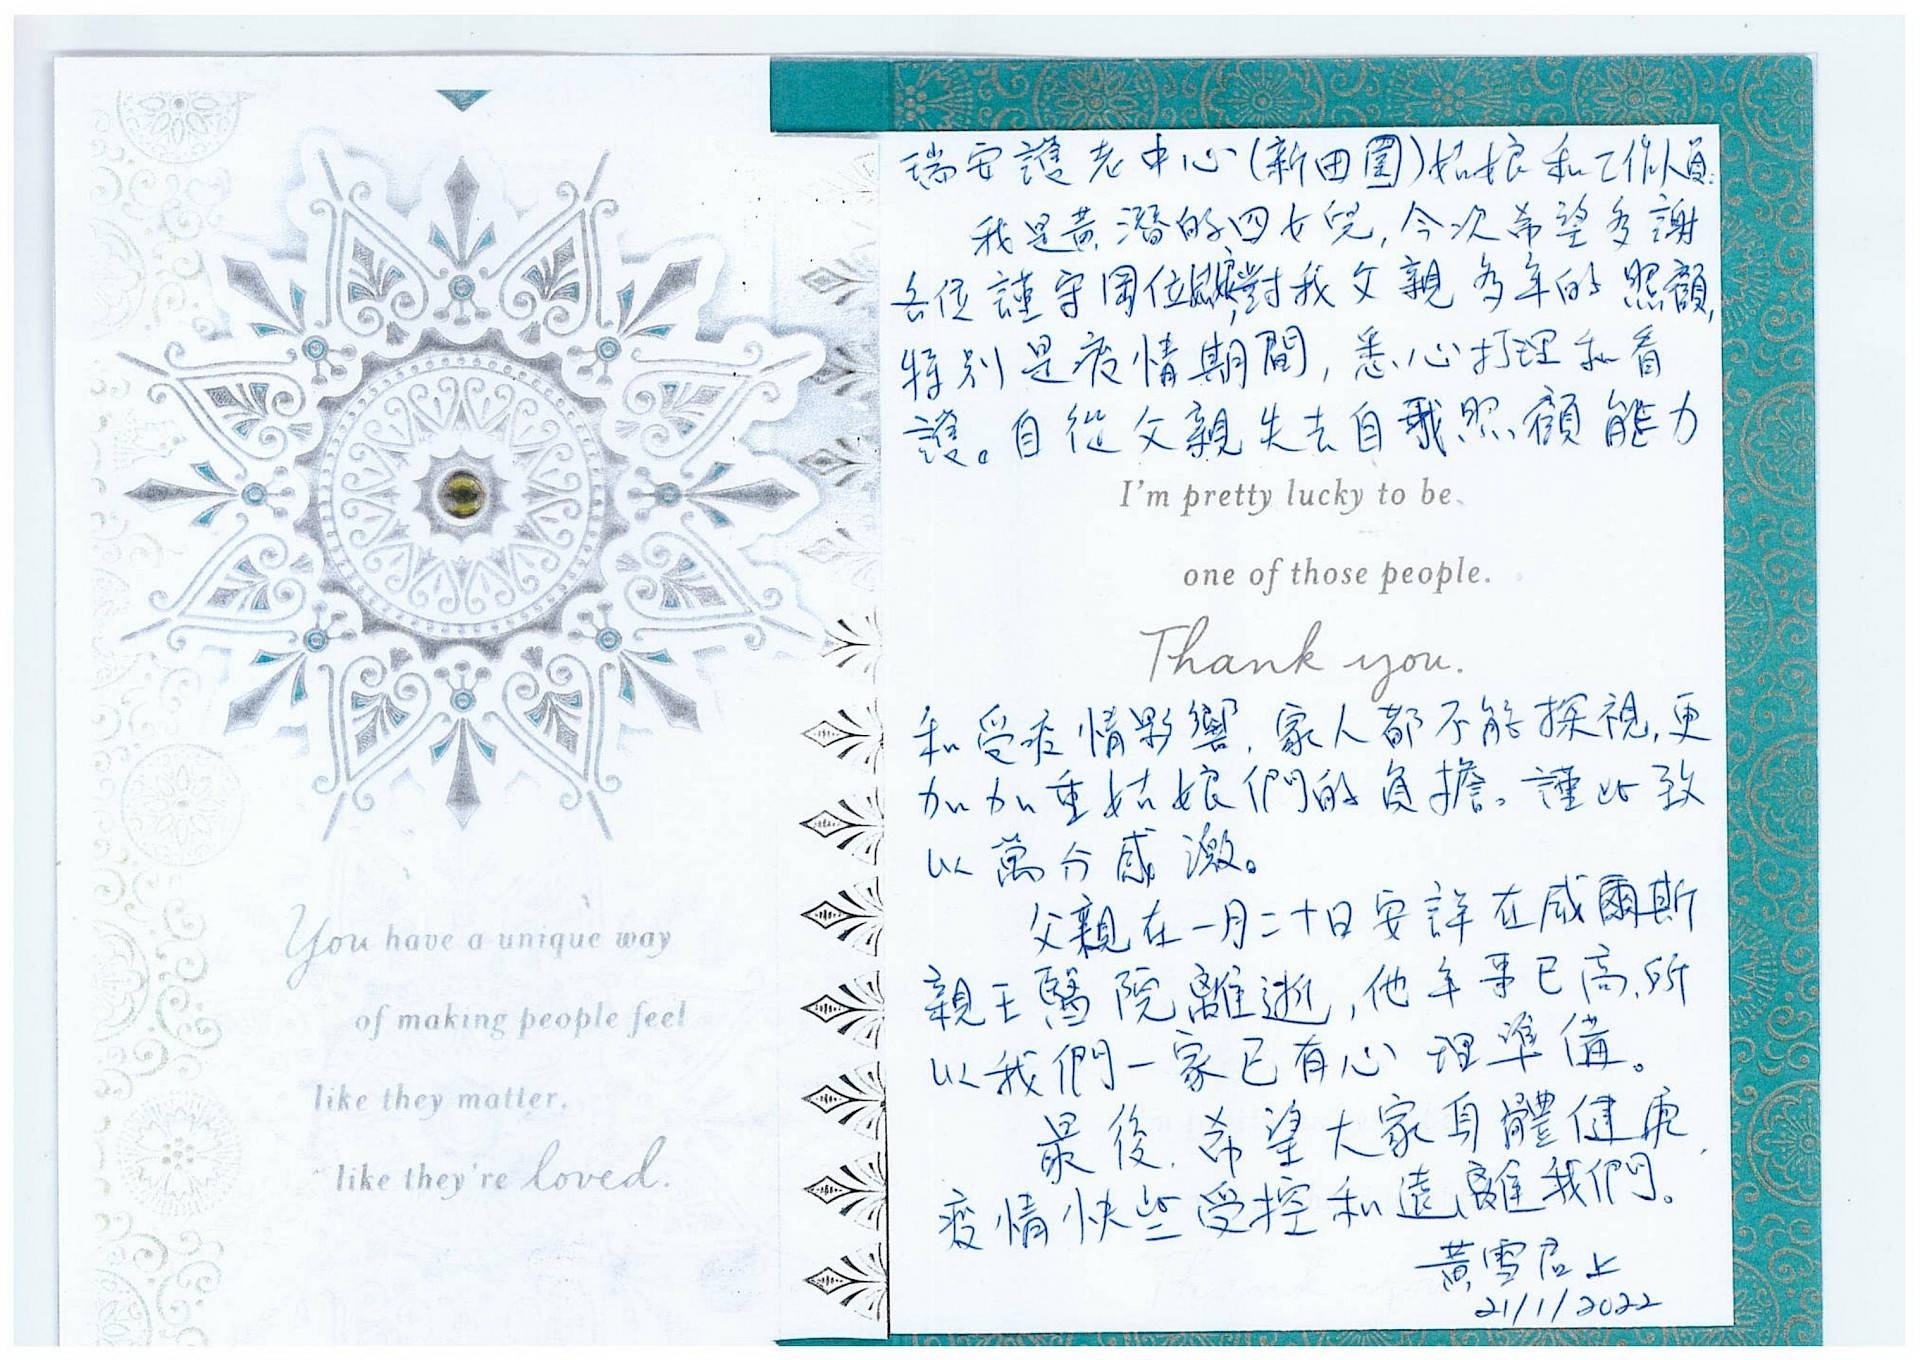 You have a unique way
of making people feel
like they matter,
like they're loved.
瑞安護老中心(新田圍)姑娘和工作人員:
我是黃潛的四女兒,今次希望多謝
各位謹守崗位,對我父親多年的照顧,
特別是疫情期間,悉心打理和看
護。自從父親失去自我照顧能力
I'm pretty lucky to be
one of those people.
Thank you.
和受疫情影響,家人都不能探視,更
加加重姑娘們的負擔。謹此致
以萬分感激。
父親在一月二十日安詳在威爾斯
親王醫院離逝,他年事已高,所
以我們一家已有心理準備。
最後,希望大家身體健康,
疫情快些受控和遠離我們。
黃雪君上
21/1/2022